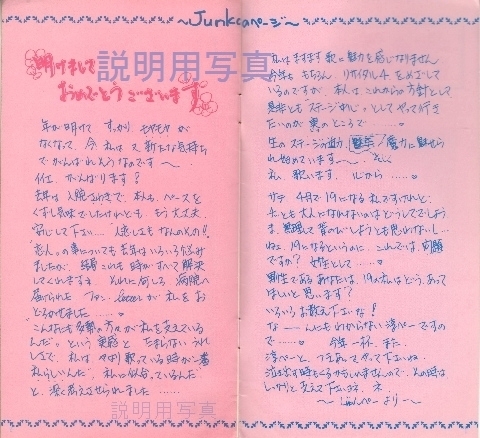 ～Junkoページ～
説明用写真
明けまして
おめでとうございます
年が明けて すっかり モヤモヤ が
なくなって、今 私は 又 新たな気持ち
でがんばれそうなのです～
仕事、がんばります!
去年は 入院さわぎで、本人も、ペースを
くずし気味でしたけれども、もう大丈夫。
安心して下い… 人達しても なんのその!!
"恋人"の事についても 去年はいろいろ悩み
ましたが、結局 これも 時がすべて 解決
してくれますネ それに何しろ 病院へ
届けられた ファンletterが 私を お
どろかせました……。
"こんなにも 多勢の方々が私を支えている
んだ"。という 実感と たまらない うれ
しさで、私は、やはり 歌っている 時が一番
私らしいんだ"、私に似合っているんだ"
と、深く考えさせられました ……
説明用写真
私はますます 歌に 魅力を感じなりません
今年も もちろん、リサイタル4 をめざして
いるのですが、本人は これからの方針として
是非とも"ステージわし"として やって行き
たいのが 裏のところで………。
生のステージの迫力、魔力に魅せら
れ始めています～。
私、歌います。心から ……。
サテ、4月で 19になる 私ですけれど、
ねェ、19になるというのに、これでは、問題
ですか? 女性として ……。
ほしいと 思います?
いろいろ お教え下いな!
な――んにも わからない 淳ぺーですの
で……。 今年一杯、また、
淳ぺーと、つきあって やって下いね。
泣き出す時もくるかもしれませんので、その時は
しっかりと支えて下いませ、ネ。
～じゅんぺーより～